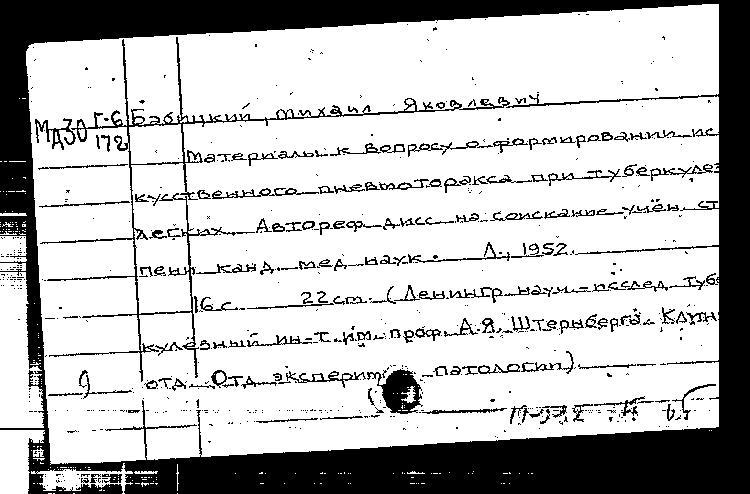 МАЗО Г-6 Бабицкий, Михаил Яковлевич
172
Материалы к вопросу о формировании ис
кусственного пневмоторакса при туберкулез
легких. Автореф. дисс на соискание учён. ст
пени канд. мед наук. Л., 1952.
16 с. 22 см. (Ленингр. науч.-исслед. тубе
кулёзный ин-т. им. проф. А.Я. Штернберга. Клин
отд. Отд. эксперим патологии)